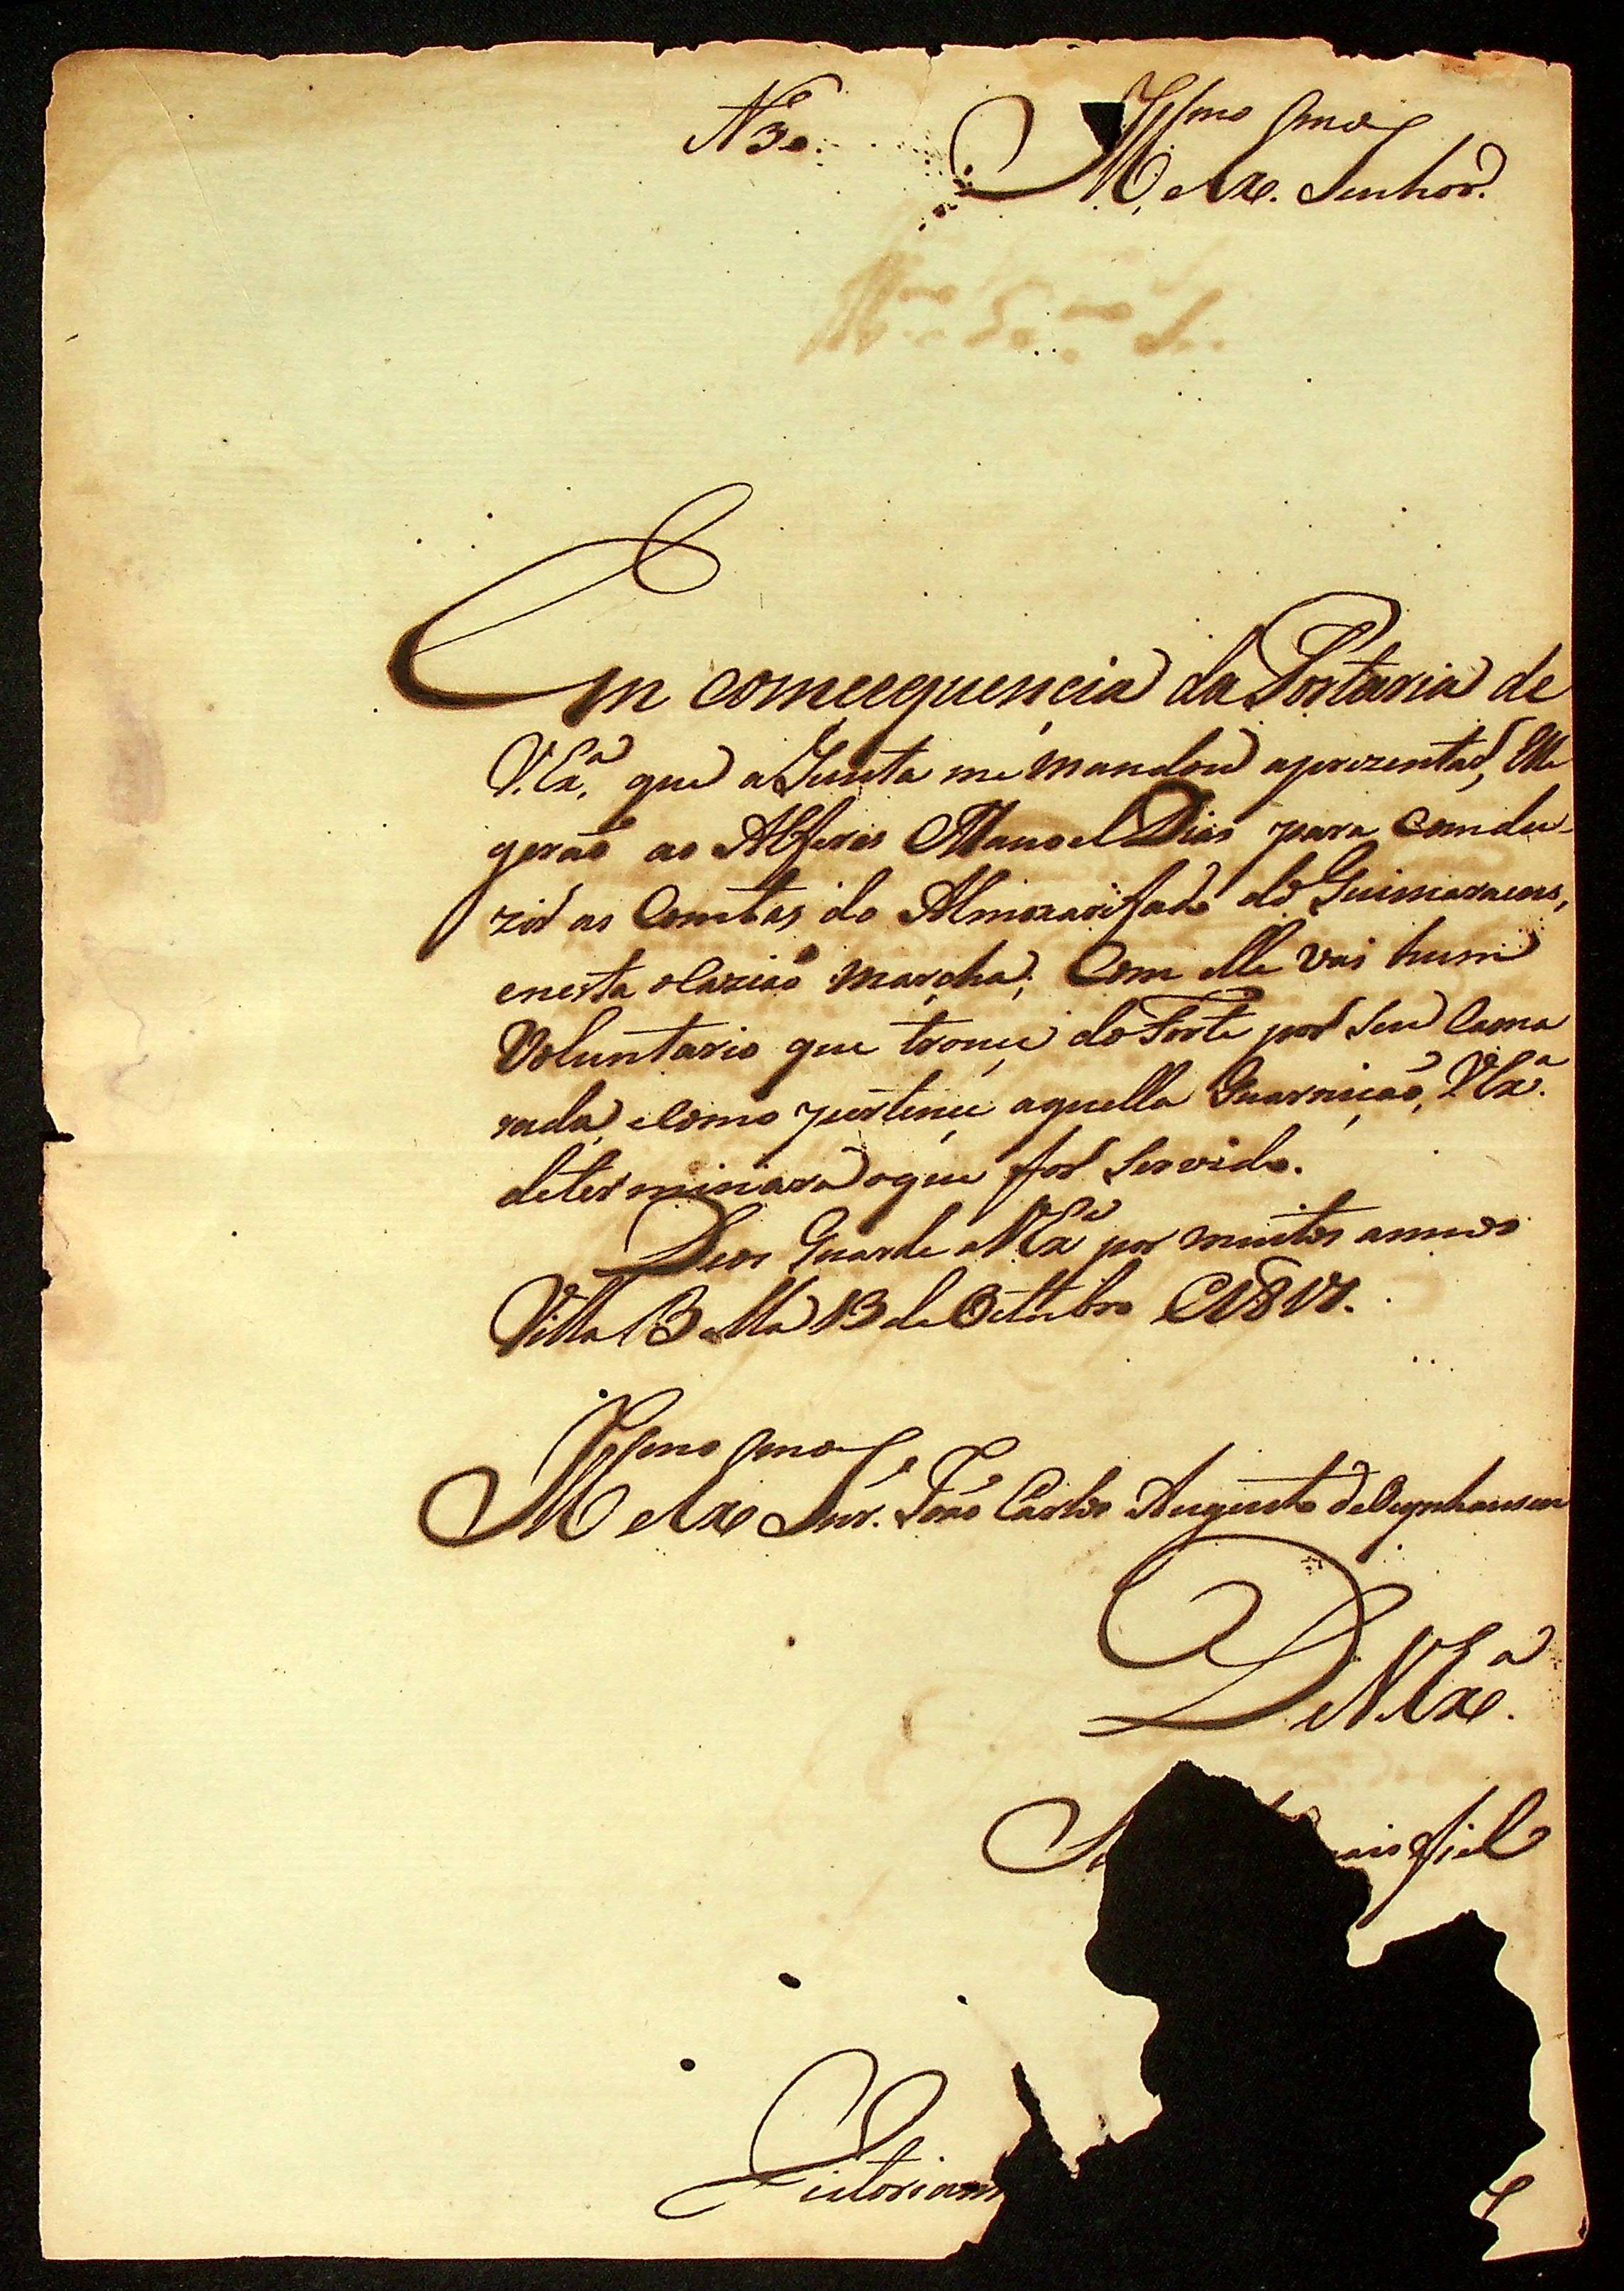 N 3o.
Illmo Exmo Senhor.
Em comcequencia da Portaria de
V. Exa. que a Junta me mandou aprezentar, Ele
gerão ao Alferes Manoel Dias para Comdu-
zir as Comtas do Almoxarifado do Guimaraens,
enesta olaziaõ marcha; Com elle vai hum
Voluntario que trouçe do Forte por Seu Cama
rada, eComo pertençe aquella Guarnição, V. Exa.
determinara oque for Servido.
Deos Guarde a V. Exa por muitos annos
Villa Bella 13 de Outubro
Illmo Exmo Snr. João Carlos Augusto deOeynhausen
De V. Exa.
mais fiel
Victoriano